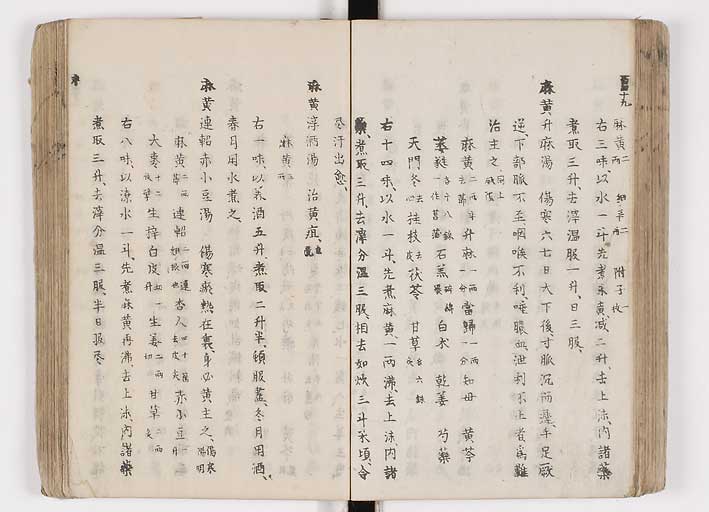 麻黄二両 細辛二両 附子一枚
右三味、以水一斗、先煮麻黄減二升、去上沫、内諸藥
煮取三升、去滓温服一升、日三服、
麻黄升麻湯 傷寒六七日大下後、寸脈沉而遲、手足厥
逆、下部脈不至咽喉不利、唾膿血泄利不止者、爲難
治、主之、
麻黄二両半去節 升麻一両一分 當歸一両一分 知母 黄芩
萎蕤各十八銖一作菖蒲 石膏碎綿裹 白朮 乾姜 芍藥
天門冬去心 桂枝去皮 茯苓 甘草各六銖炙
右十四味、以水一斗、先煮麻黄、一両沸、去上沫内諸
藥、煮取三升、去滓分温三服、相去如炊三斗米頃、令
尽汗出愈
麻黄淳酒湯 治黄疸、
麻黄三両
右一味以美酒五升、煮取二升半、頓服盡、冬月用酒、
春月用水煮之、
麻黄連軺赤小豆湯 傷寒瘀熱、在裏、身必黄主之、傷寒陽明
麻黄二両節 連軺二両連翹根也 杏人四十箇去皮尖 赤小豆一升
大棗十二枚擘 生梓白皮切一升 生姜二両切 甘草二両炙
右八味、以潦水一斗、先煮麻黄再沸、去上沫、内諸藥
煮取三升、去滓分温三服、半日服尽